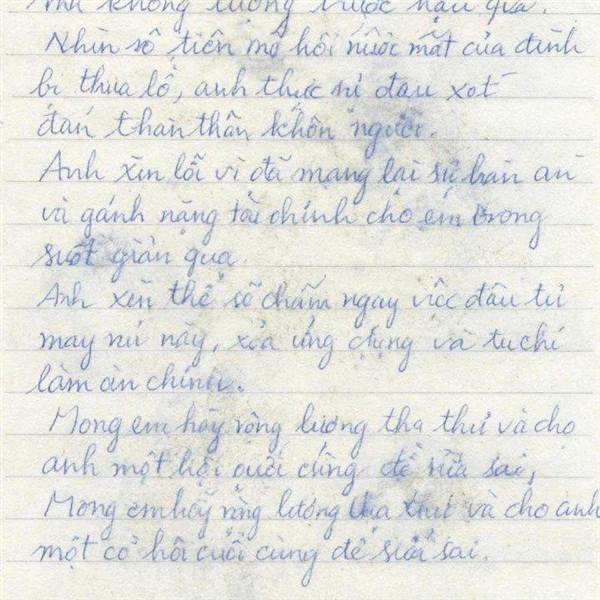 không lường trước hậu quả.
Nhìn số tiền mồ hôi nước mắt của đình
bị thua lỗ, anh thực sự đau xót
thân khôn người.
Anh xin lỗi vì đã mang lại sự bàn an
và gánh nặng tài chính cho em trong
suốt giản qua
Anh xin thề sẽ chấm ngay việc đầu tư
may rủi này, xóa ứng dụng và tu chí
làm ăn chính.
Mong em hãy rộng lượng tha thứ và cho
anh một hội cuối cùng để sửa sai,
Mong em hãy rộng lượng tha thứ và cho anh
một cơ hội cuối cùng để sửa sai.